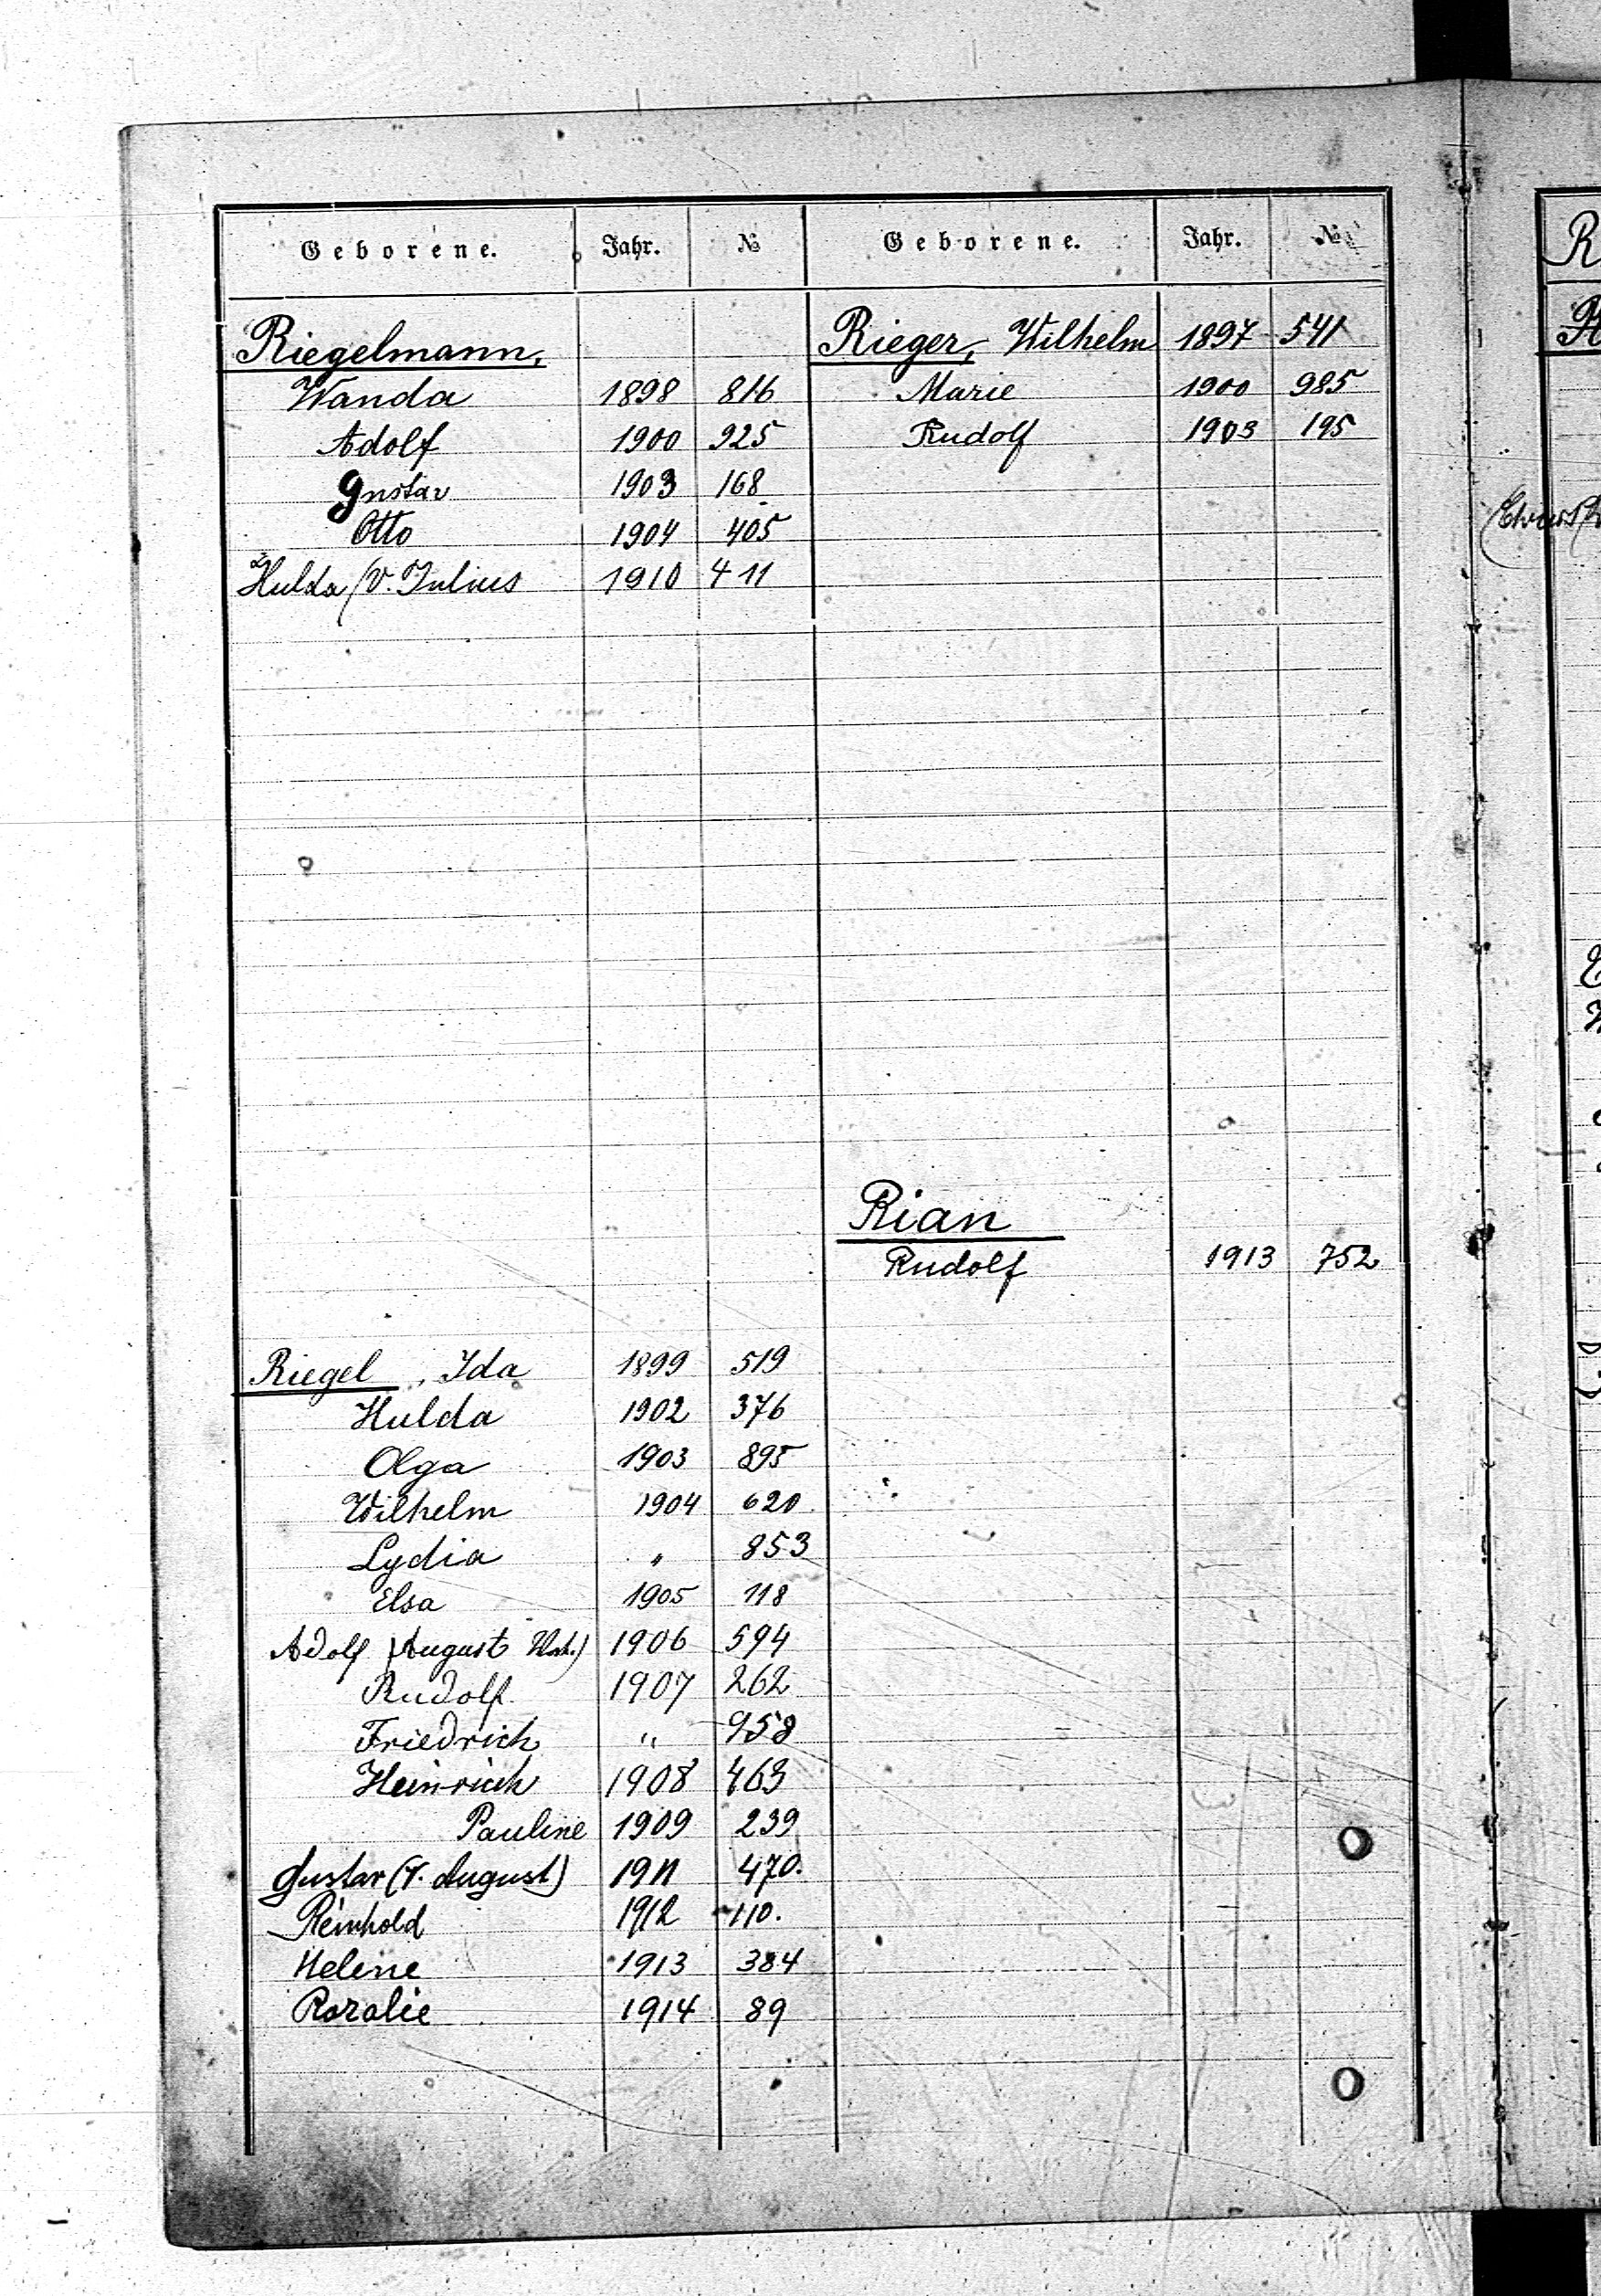 Geborene. Jahr. №
Riegelmann,
Wanda 1898 816
Adolf 1900 925
Gustav 1903 168
Otto 1904 405
Hulda (V. Julius 1910 411
Riegel, Ida 1899 519
Hulda 1902 376
Olga 1903 895
Wilhelm 1904 620
Lydia " 853
Elsa 1905 118
Adolf (August 1906 594
Rudolf 1907 262
Friedrich " 958
Heinrich 1908 463
Pauline 1909 239
Gustav (V. August) 1911 470.
Reinhold 1912 110.
Helene 1913 384
Rozalie 1914 89
Geborene. Jahr. №
Rieger, Wilhelm 1897 541
Marie 1900 985
Rudolf 1903 195
Rian
Rudolf 1913 752
R